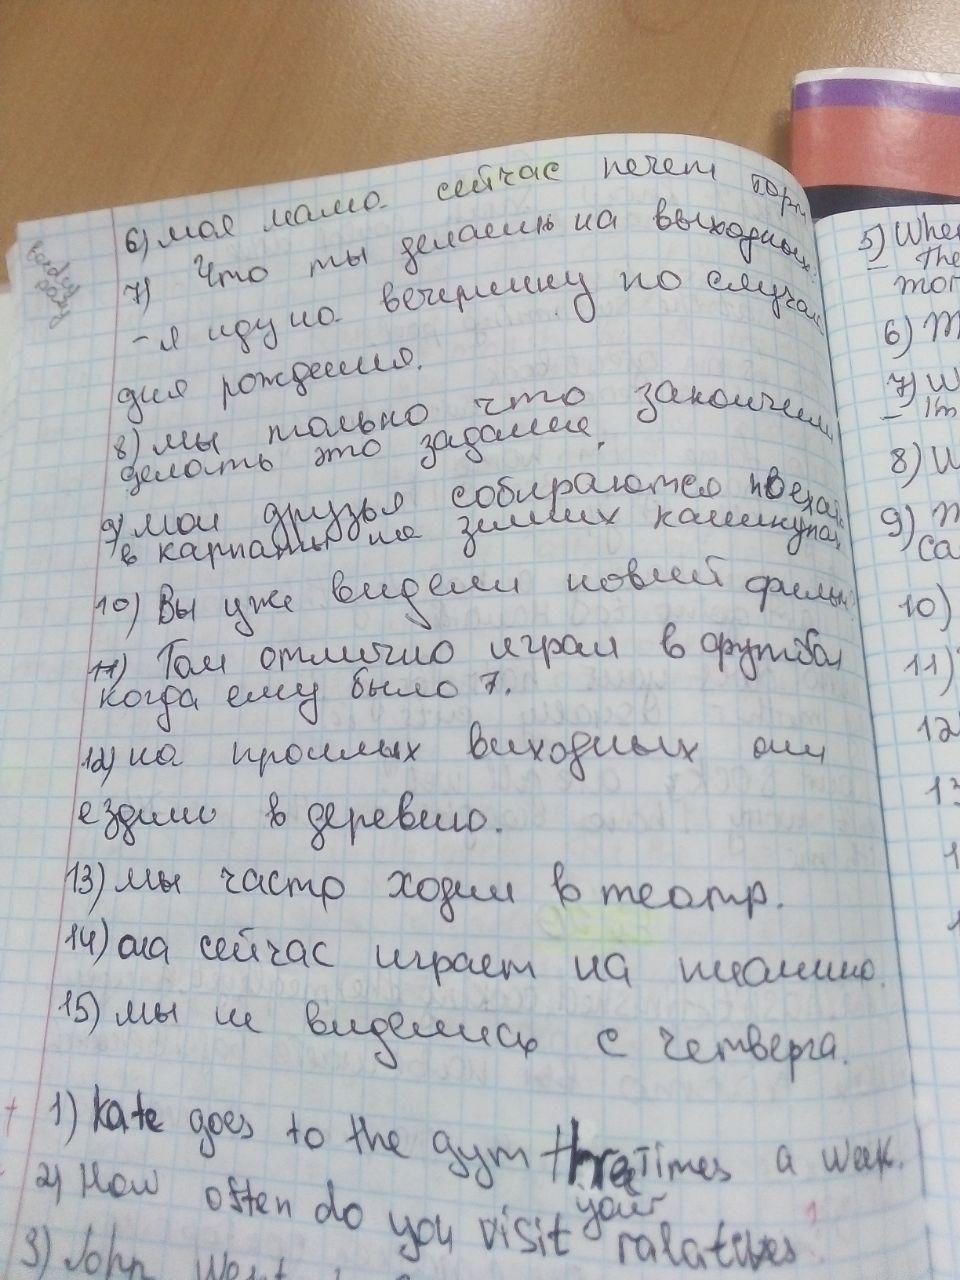 6) моя мама сейчас печет торт
7) Что ты делаешь на выходных?
- я иду на вечеринку по случаю
дня рождения.
8) мы только что закончили
делать это задание.
9) мои друзья собираются поехать
в карпаты на зимних каникулах
10) Вы уже видели новый фильм?
11) Том отлично играл в футбол
когда ему было 7.
12) на прошлых виходных они
ездили в деревню.
13) мы часто ходим в театр.
14) она сейчас играет на пианино.
15) мы не виделись с четверга.
1) Kate goes to the gym three times a week.
2) How often do you visit your ralatives?
3) John went
5) When
the
mor
6) M
7) W
- I'm
8) W
9) M
Ca
10)
11)
12
13
1